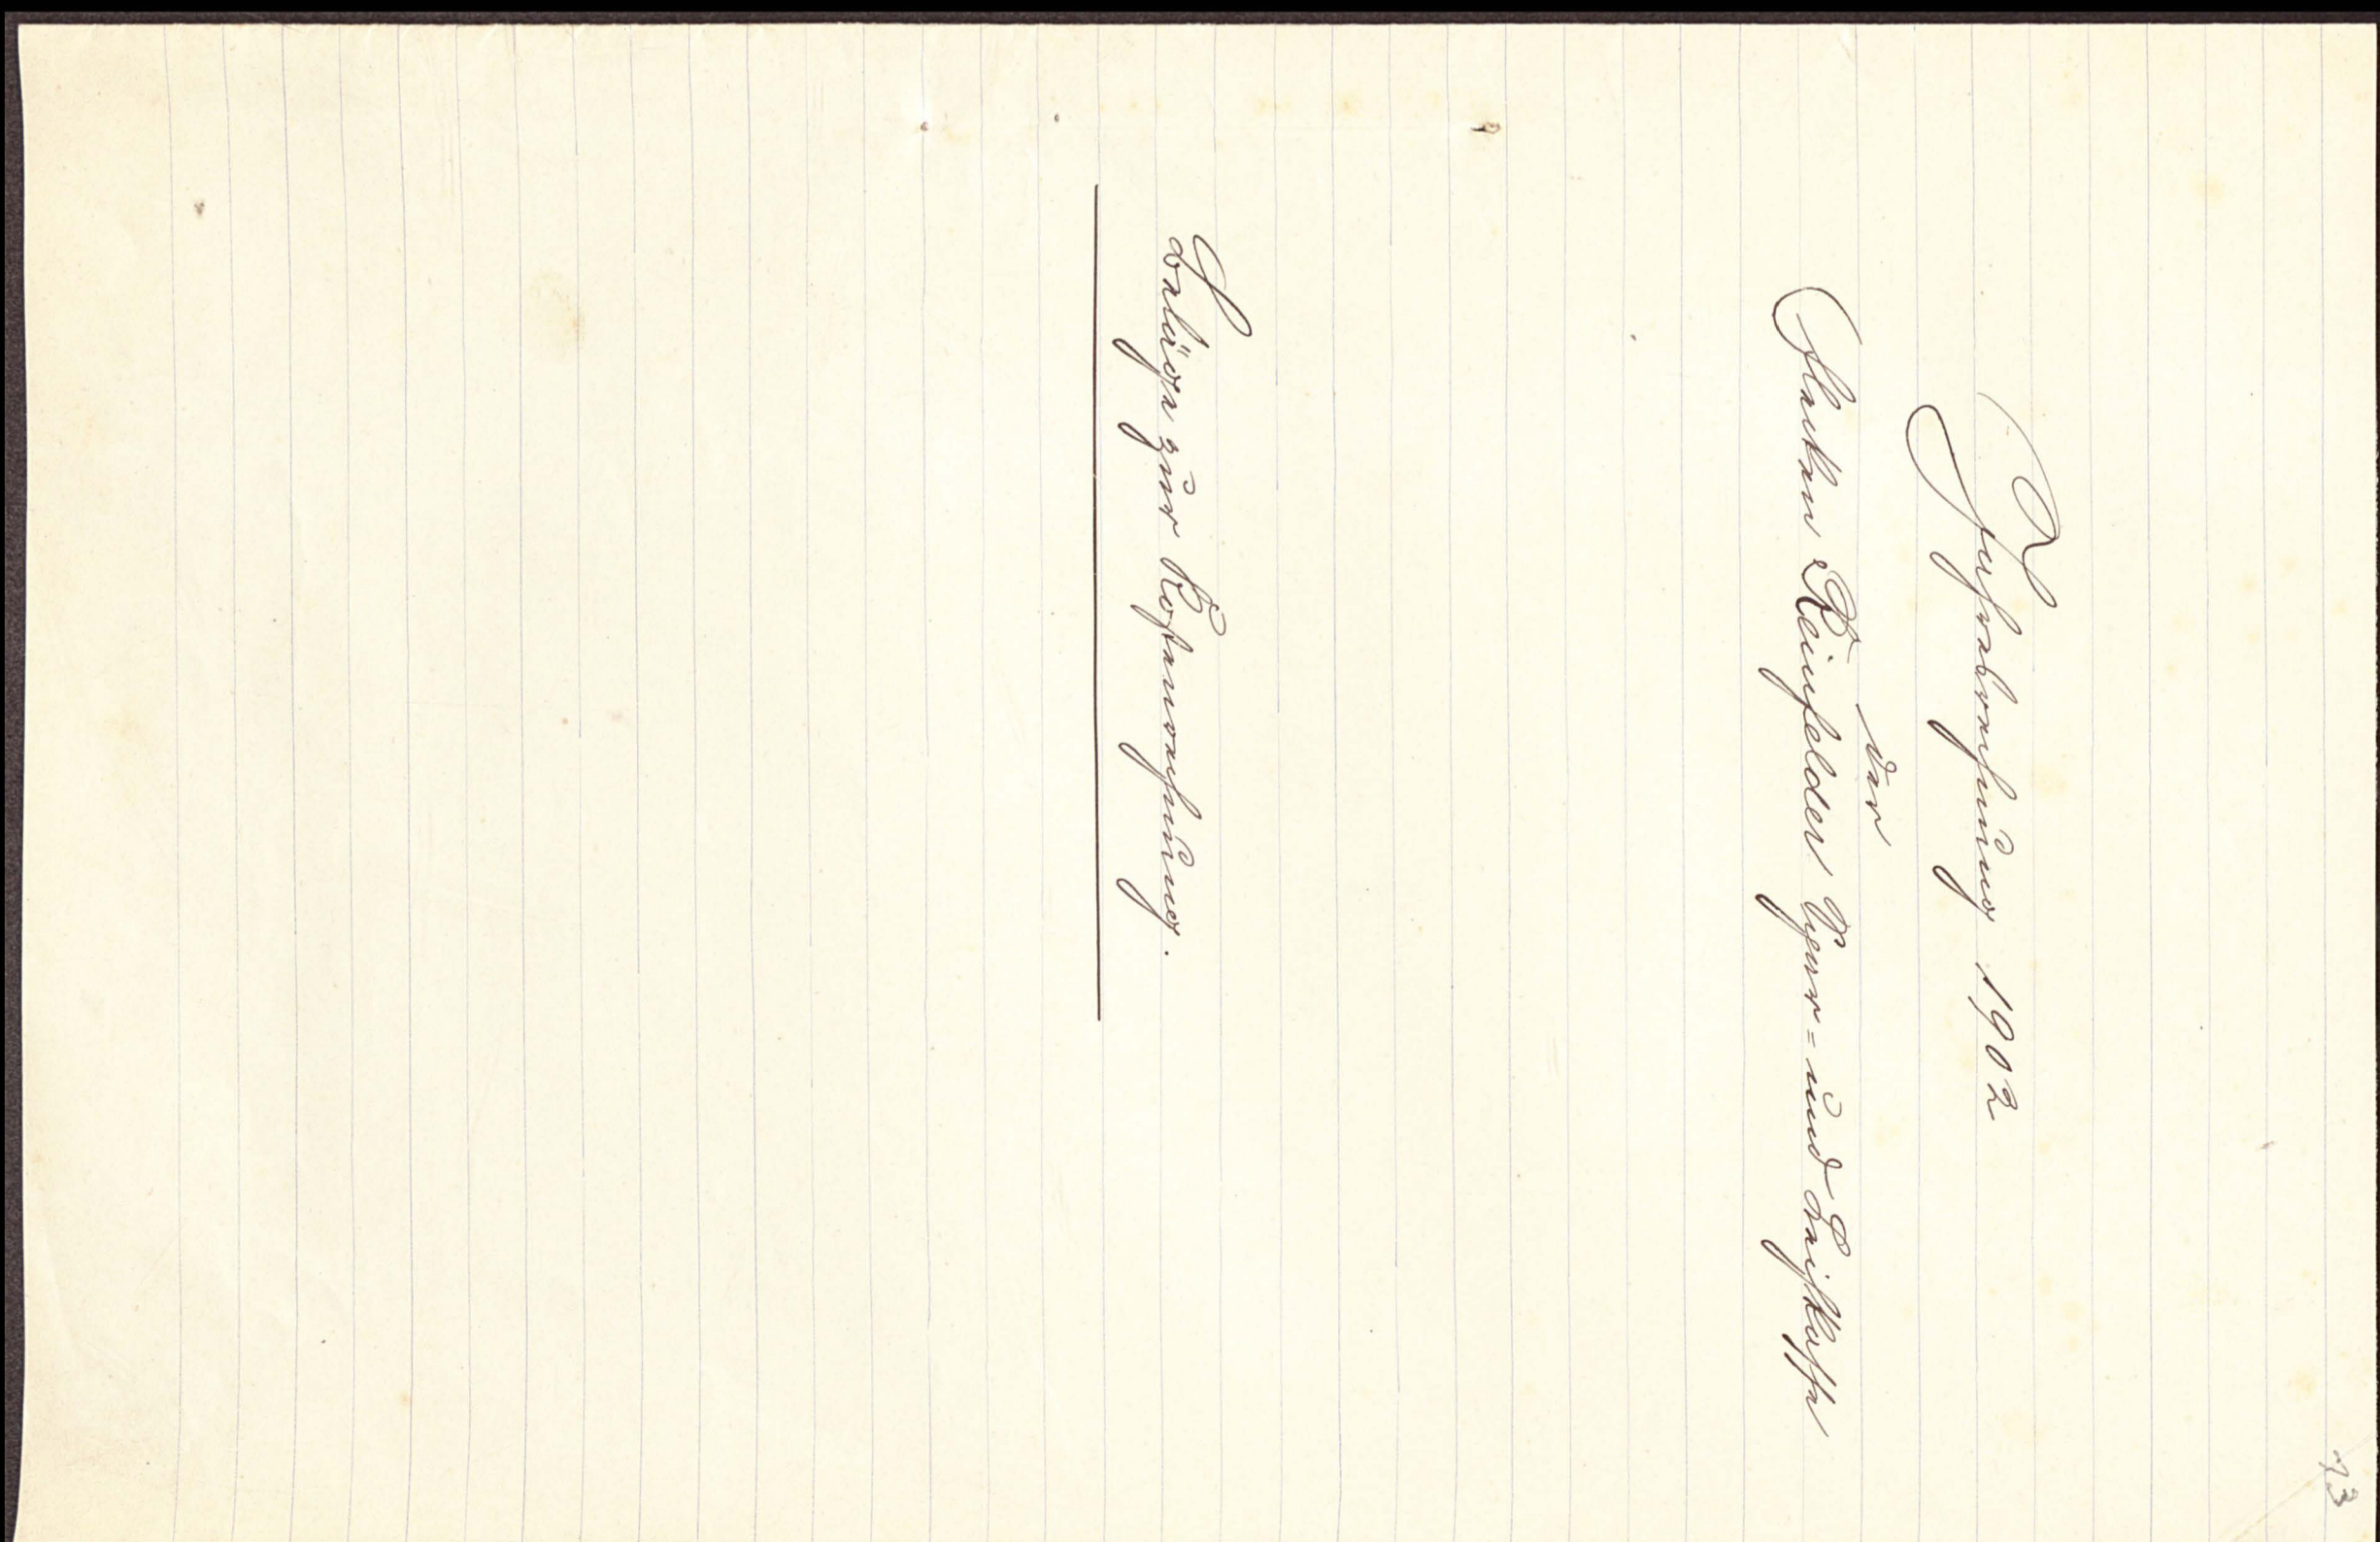 73
Jahresrechnung 1902
der
Flecken Reinfelder Spar= und Leihkasse
Belege zur Kostenrechnung.